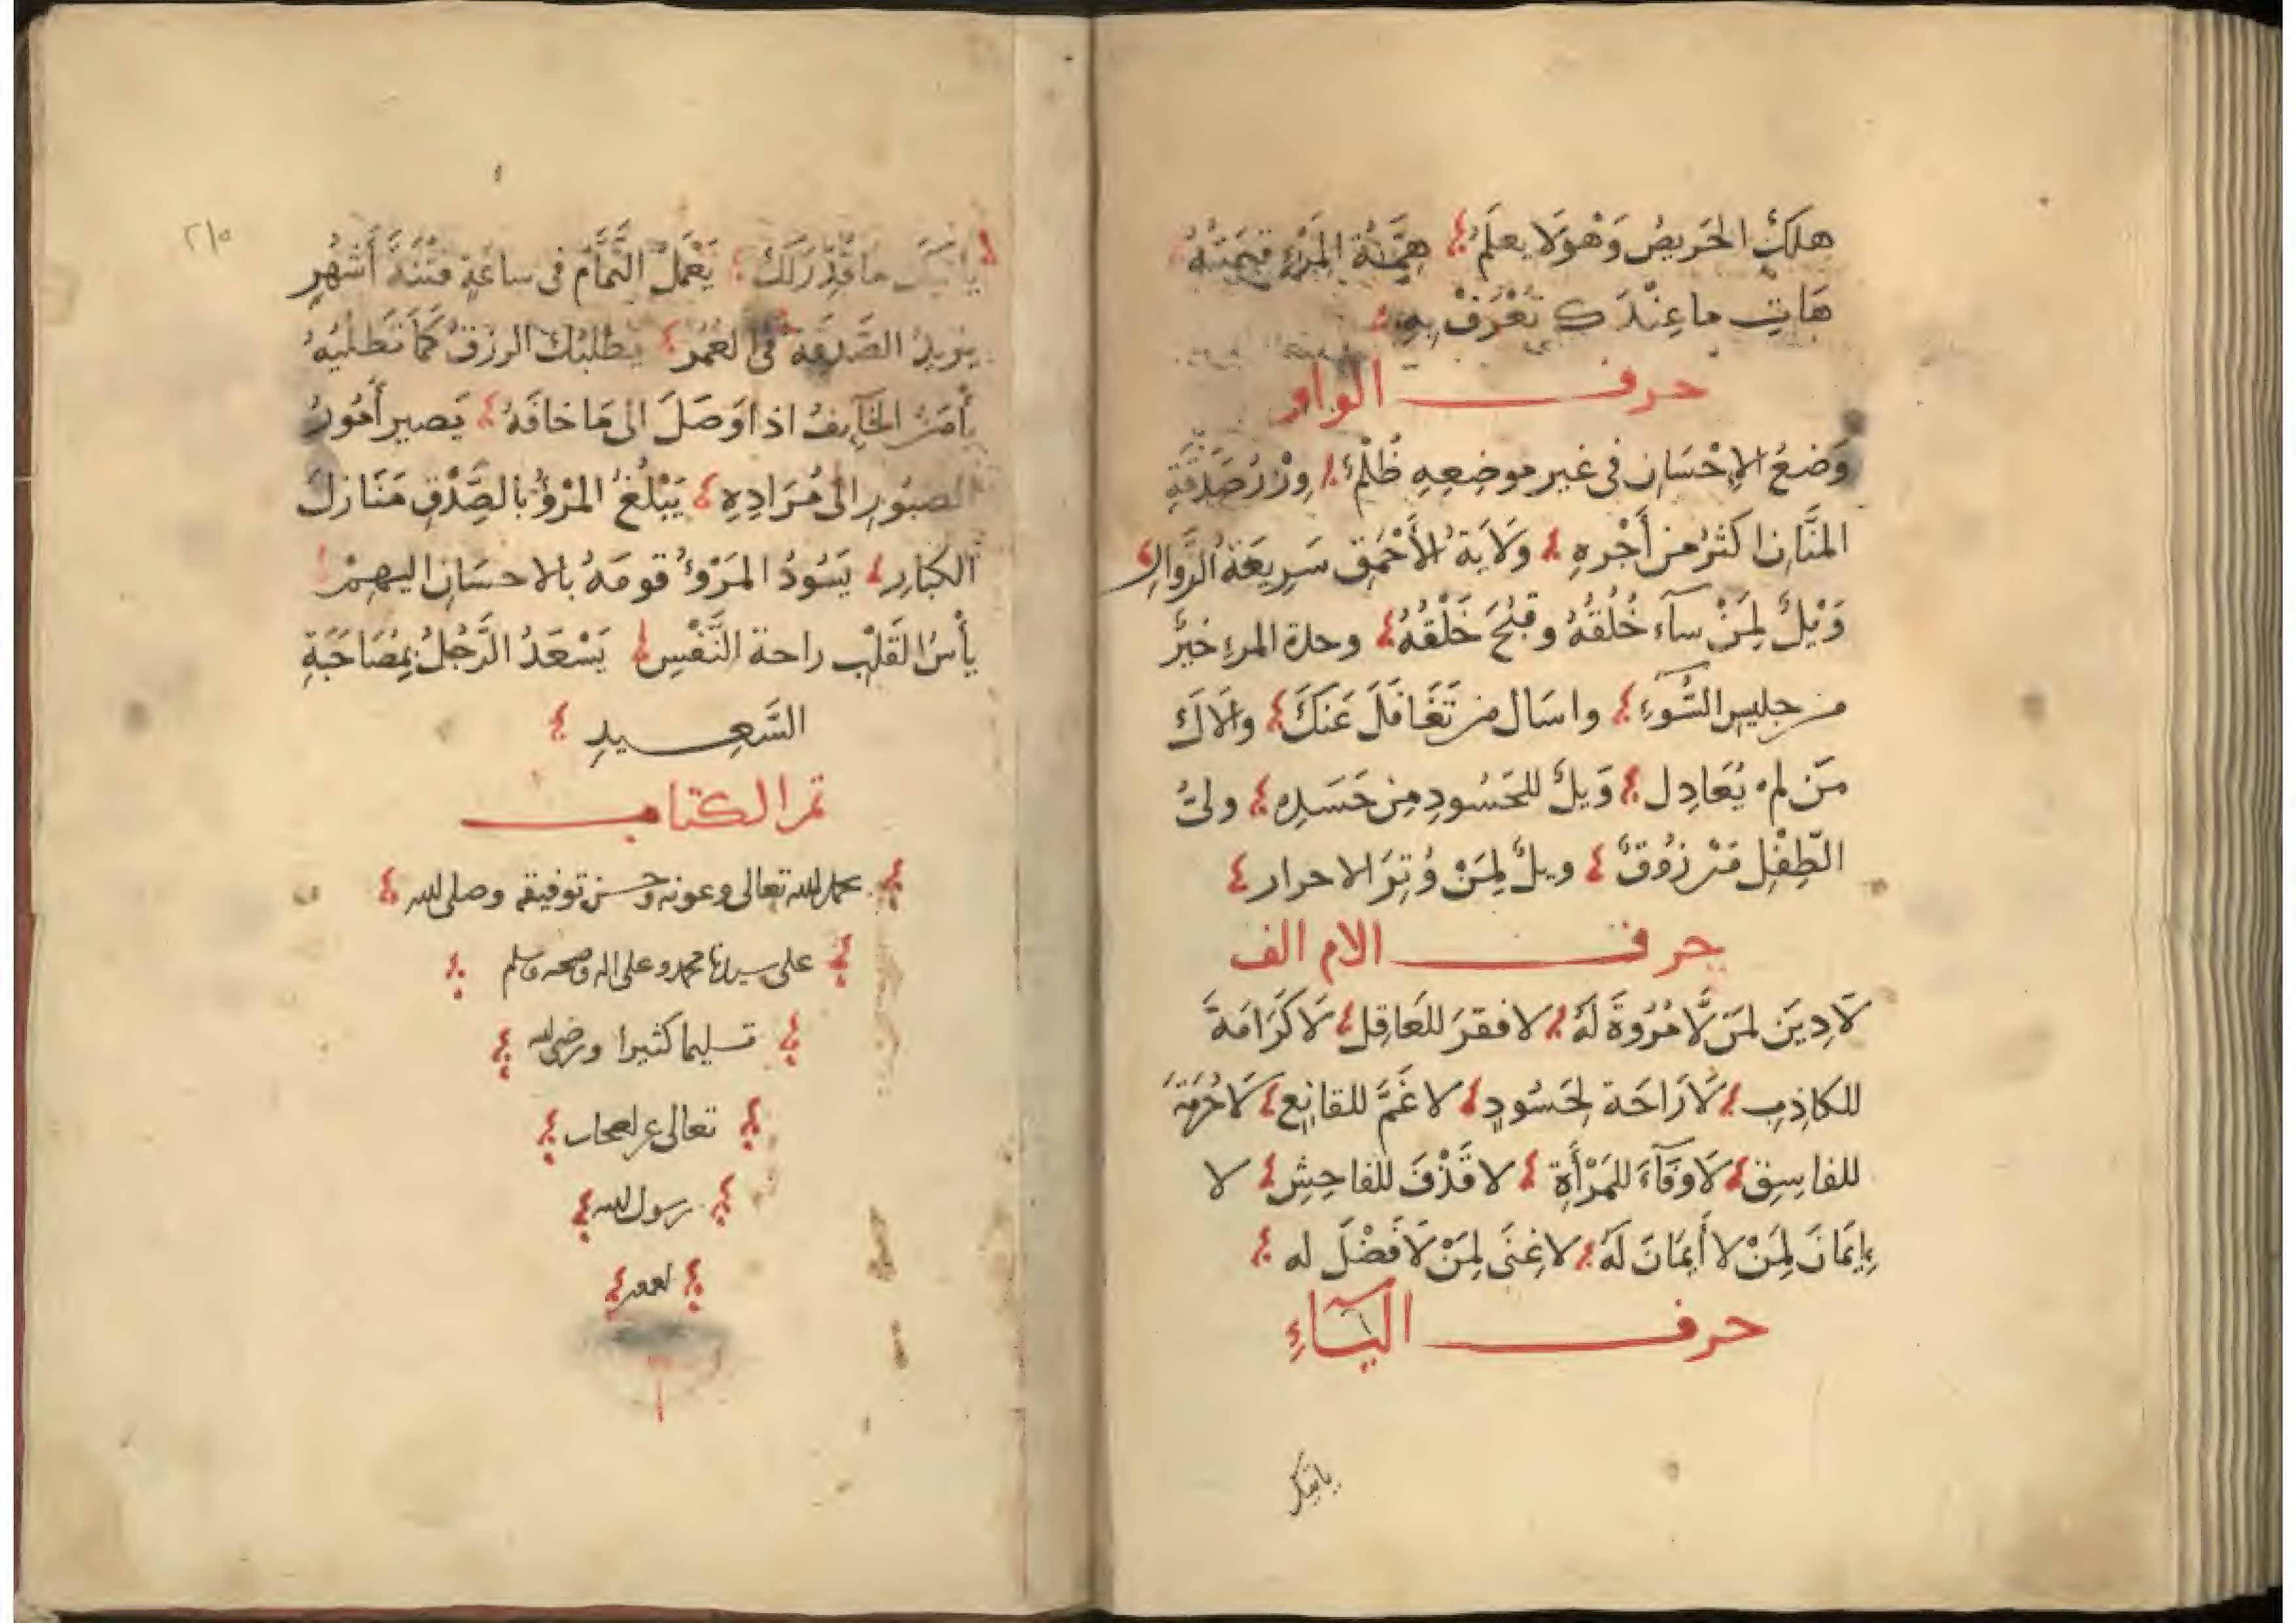 هَلَكَ الحَريصُ وَهْوَ لا يعلَمُ هِمَّةُ المَرْءِ قيمَتُهُ
هَاتِ ما عِنْدَكَ تُعْرَفْ بِهِ
حرف الواو
وَضعُ الإحْسَانِ فى غير موضِعِهِ ظُلْمٌ وِزْرُ صَدَقَةِ
المنَّانِ اكثَرُ من أَجْرِهِ وَلَايَةُ الأَحْمَقِ سَرِيعَةُ الزَّوَالِ
وَيْلٌ لِمَنْ سآءَ خُلُقُهُ وقَبُحَ خَلْقُهُ وحدة المرءِ خَيرٌ
من جليس السُّوَءِ واسَال من تَغَافَلَ عَنَكَ والَاكَ
مَن لم يُعَادِل وَيلٌ للحَسُودِ مِن حَسَدِه ولىُّ
الطِّفْلِ مَرْزُوقٌ ويلٌ لِمَنْ وُتِرَ الاحرار
حرف الام الف
لَا دِينَ لمَن لَّا مُرُوةَ لَهُ لا فقرَ للعَاقِل لَا كَرَامَةَ
للكاذِبِ لَا رَاحَة لِحَسُودٍ لا غَمَّ للقانِعِ لَا حُرمَةَ
للفاسِقِ لَا وَفَآءَ للمَرْأَةِ لا قَذْفَ للفاحِشِ لا
إِيمَانَ لِمَنْ لا أَيمَانَ لَهُ لا غِنَى لِمَنْ لَا فَضْلَ له
حرف اليَآءِ
ياتيك
٢١٥
يأتيكَ ما قُدِّرَ لَكَ يَعْمَلُ النَّمَّامُ فى ساعَةٍ فتْنَةَ أَشهُرٍ
يزيدُ الصَّدقَة فى العُمُر يطلبُكَ الرزقُ كَما تَطلُبُهُ
يأمَنُ الخآيِفُ اذا وَصَلَ الى مَا خافَهُ يَصير أمُورُ
الصبُورِ الى مُرَادِهِ يَبْلُغُ المرْؤُ بالصِّدْقِ مَنَازلَ
الكبَارِ يَسُودُ المَرْؤُ قومَهُ بالاحسَانِ اليهِمْ
يأسُ القَلْبِ راحة النَّفْسِ يَسْعَدُ الرَّجُلُ بمُصَاحَبَةِ
السَّعِيدِ
تم الكتاب
بحمد الله تعالى وعونه وحسن توفيقه وصلى الله
على سيدنا محمد وعلى اله وصحبه وسلم
تسليما كثيرا ورضى الله
تعالى عن اصحاب
رسول الله